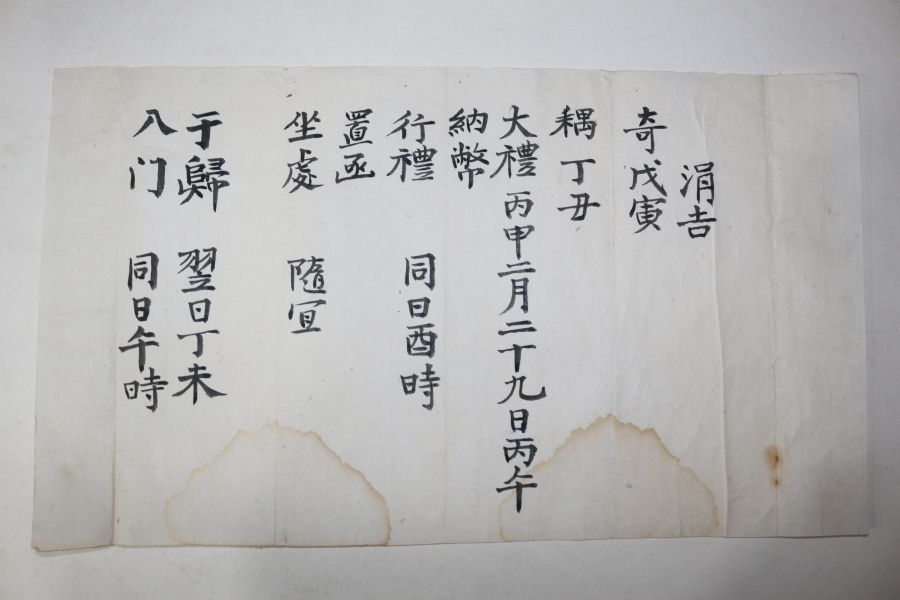 涓吉
奇戊寅
耦丁丑
大禮丙申二月二十九日丙午
納幣
行禮 同日酉時
置函
坐處 隨冝
于歸 翌日丁未
入门 同日午時